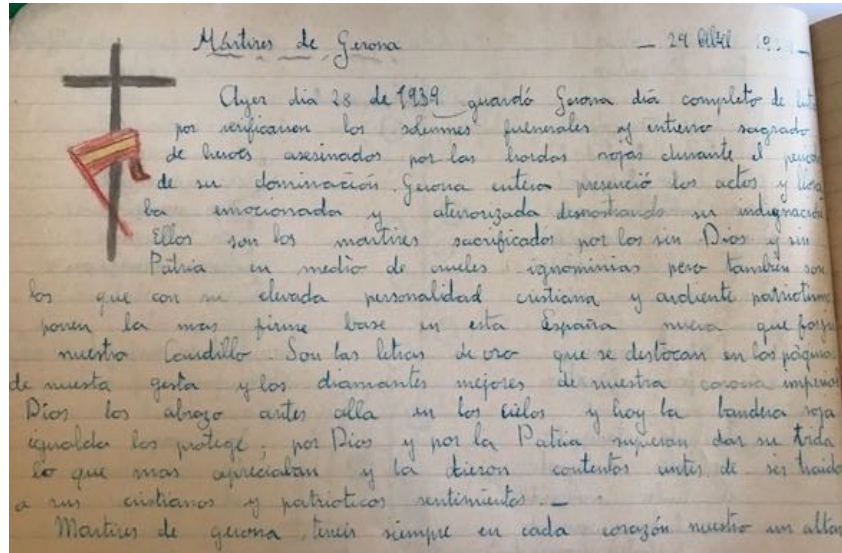 Mártires de Gerona — 29 Abril 19
Ayer dia 28 de 1939 guardó Gerona dia completo de luto
por verificarsen los solemnes fuenerales y entierro sagrado
de heroes asesinados por las hordas rojas durante el
de su dominación. Gerona entera presenció los actos y llora
ba emocionada y aterrorizada demostrando su indignación
Ellos son los martires sacrificados por los sin Dios y sin
Pátria en medio de crueles ignominias pero tambien son
los que con su elevada personalidad cristiana y ardiente patriotismo
ponen la mas firme base en esta España nueva que forja
nuestro Caudillo. Son las letras de oro que se destocan en las páginas
de nuesta gesta y los diamantes mejores de nuestra corona imperial
Dios los abrazo antes alla en los cielos y hoy la bandera roja
igualda los protege; por Dios y por la Patria supieron dar su vida
lo que mas apreciaban y la dieron contentos antes de ser traido
a sus cristianos y patrioticos sentimientos. —
Martires de gerona, teneis siempre en cada corazón nuestro un altar